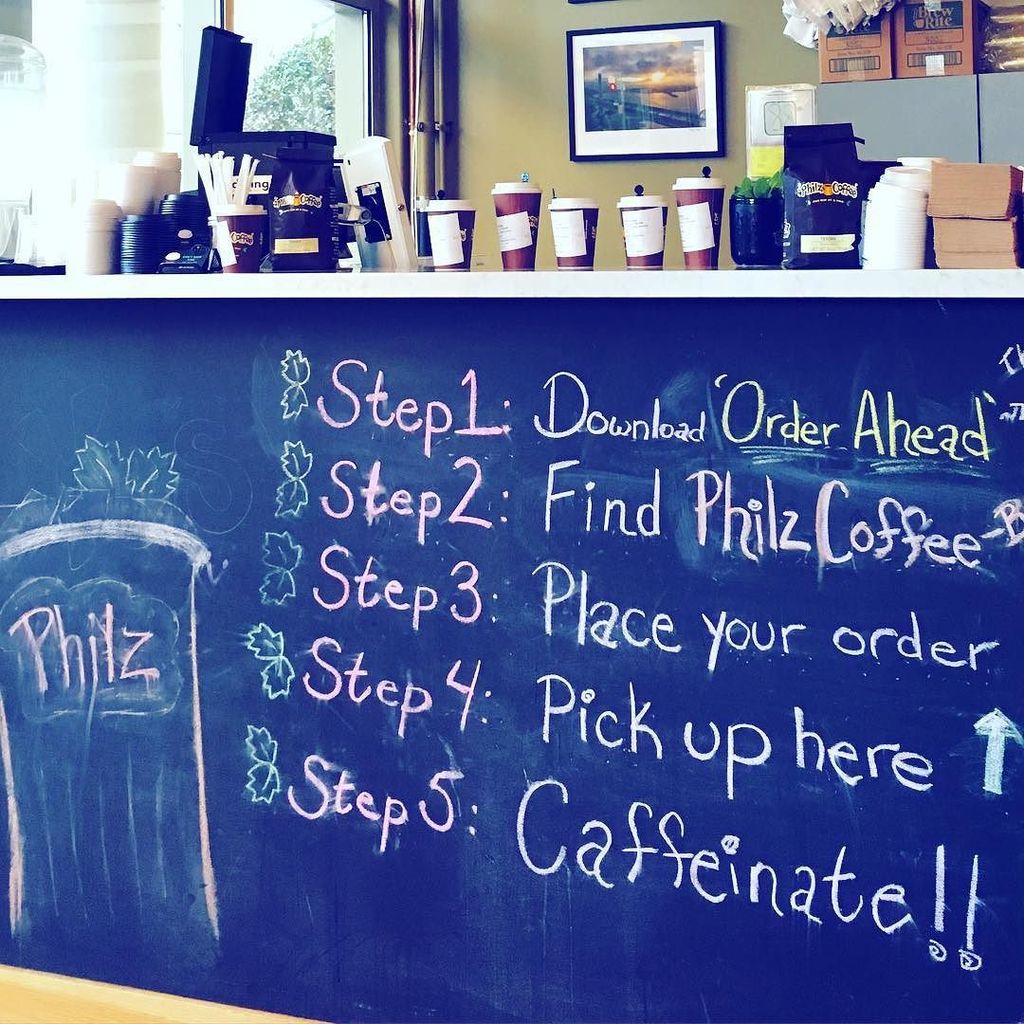 Brew
Rite
Philz Coffee
Philz Coffee
Step 1: Download 'Order Ahead'
Step 2: Find Philz Coffee - B
Step 3: Place your order
Step 4: Pick up here ↑
Step 5: Caffeinate!!
Philz